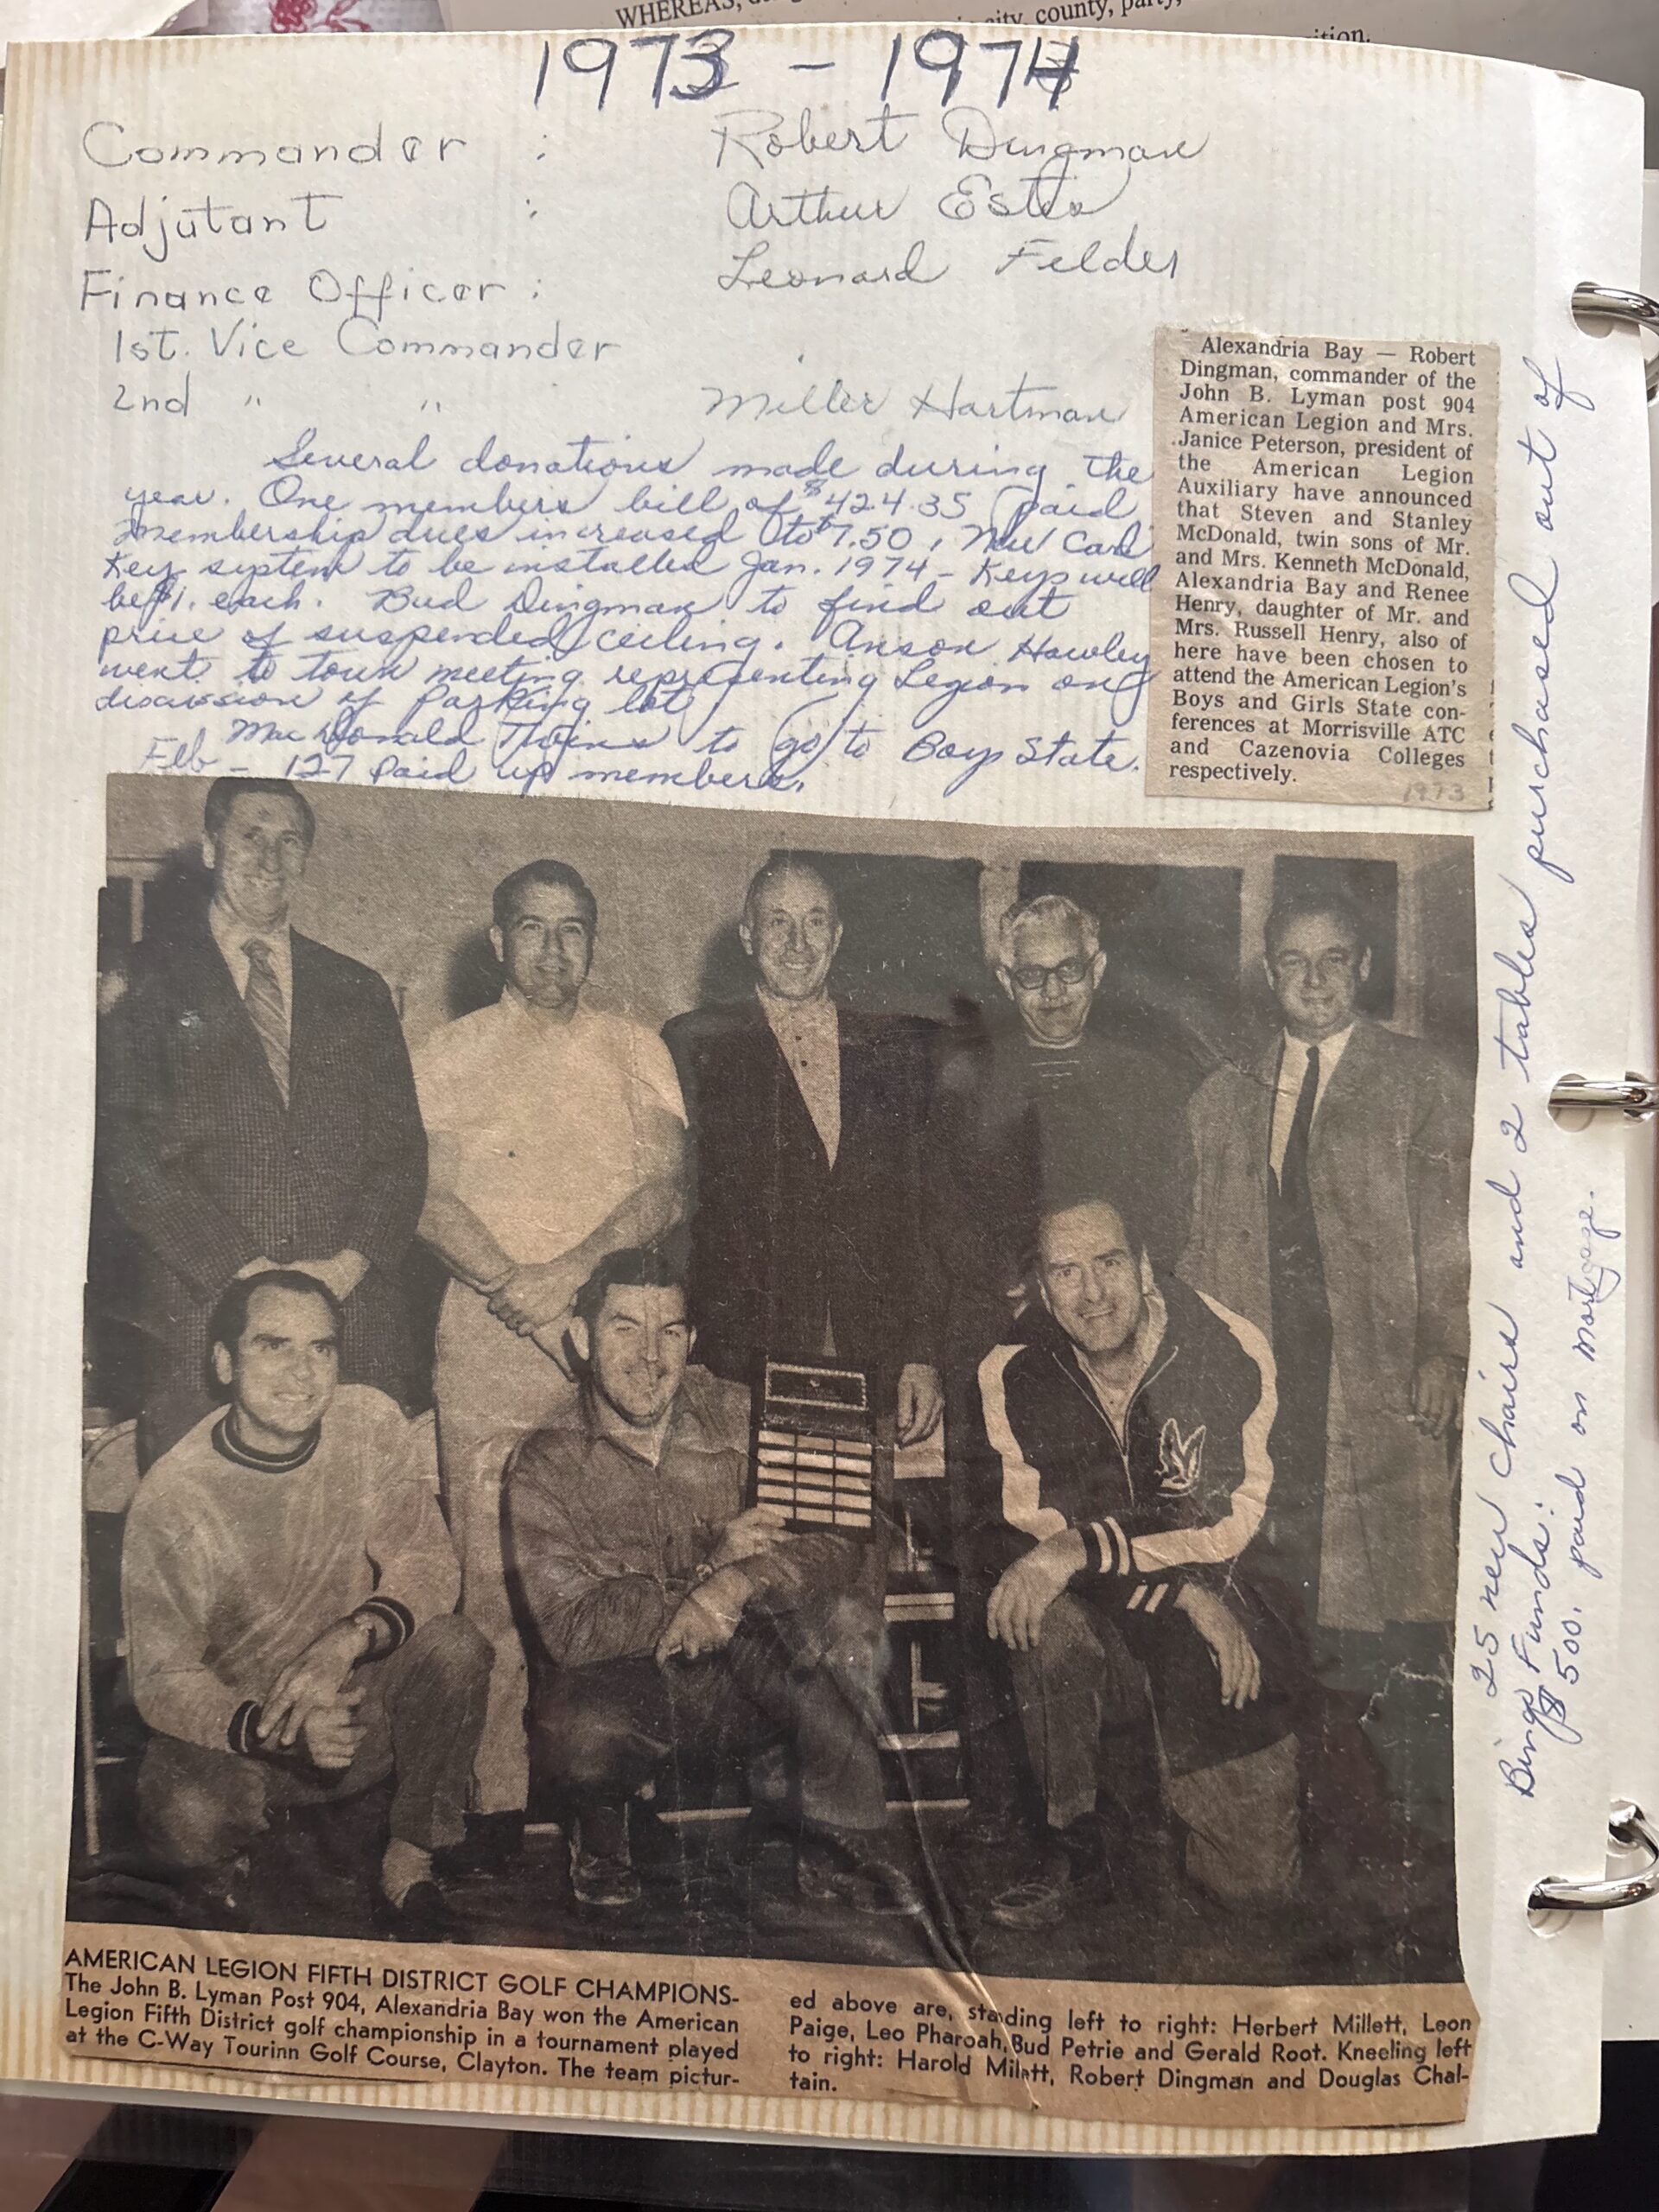 WHEREAS,
city, county, party,
ition.
1973 - 1974
Commander : Robert Dingman
Adjutant : Arthur Estes
Finance Officer : Leonard Felder
1st. Vice Commander
2nd " " Miller Hartman
Several donations made during the
year. One members bill of $424.35 paid
Membership dues increased to $7.50, New Card
Key system to be installed Jan. 1974 - Keys will
be $1. each. Bud Dingman to find out
price of suspended ceiling. Anson Hawley
went to town meeting representing Legion on
discussion of Parking lot
MacDonald Twins to go to Boys State.
Feb - 127 Paid up members.
Alexandria Bay — Robert
Dingman, commander of the
John B. Lyman post 904
American Legion and Mrs.
Janice Peterson, president of
the American Legion
Auxiliary have announced
that Steven and Stanley
McDonald, twin sons of Mr.
and Mrs. Kenneth McDonald,
Alexandria Bay and Renee
Henry, daughter of Mr. and
Mrs. Russell Henry, also of
here have been chosen to
attend the American Legion's
Boys and Girls State con-
ferences at Morrisville ATC
and Cazenovia Colleges
respectively.
1973
25 new chairs and 2 tables purchased out of
Bingo Funds.
$500. paid on Mortgage.
AMERICAN LEGION FIFTH DISTRICT GOLF CHAMPIONS-
The John B. Lyman Post 904, Alexandria Bay won the American
Legion Fifth District golf championship in a tournament played
at the C-Way Tourinn Golf Course, Clayton. The team pictur-
ed above are, standing left to right: Herbert Millett, Leon
Paige, Leo Pharoah, Bud Petrie and Gerald Root. Kneeling left
to right: Harold Milett, Robert Dingman and Douglas Chal-
tain.